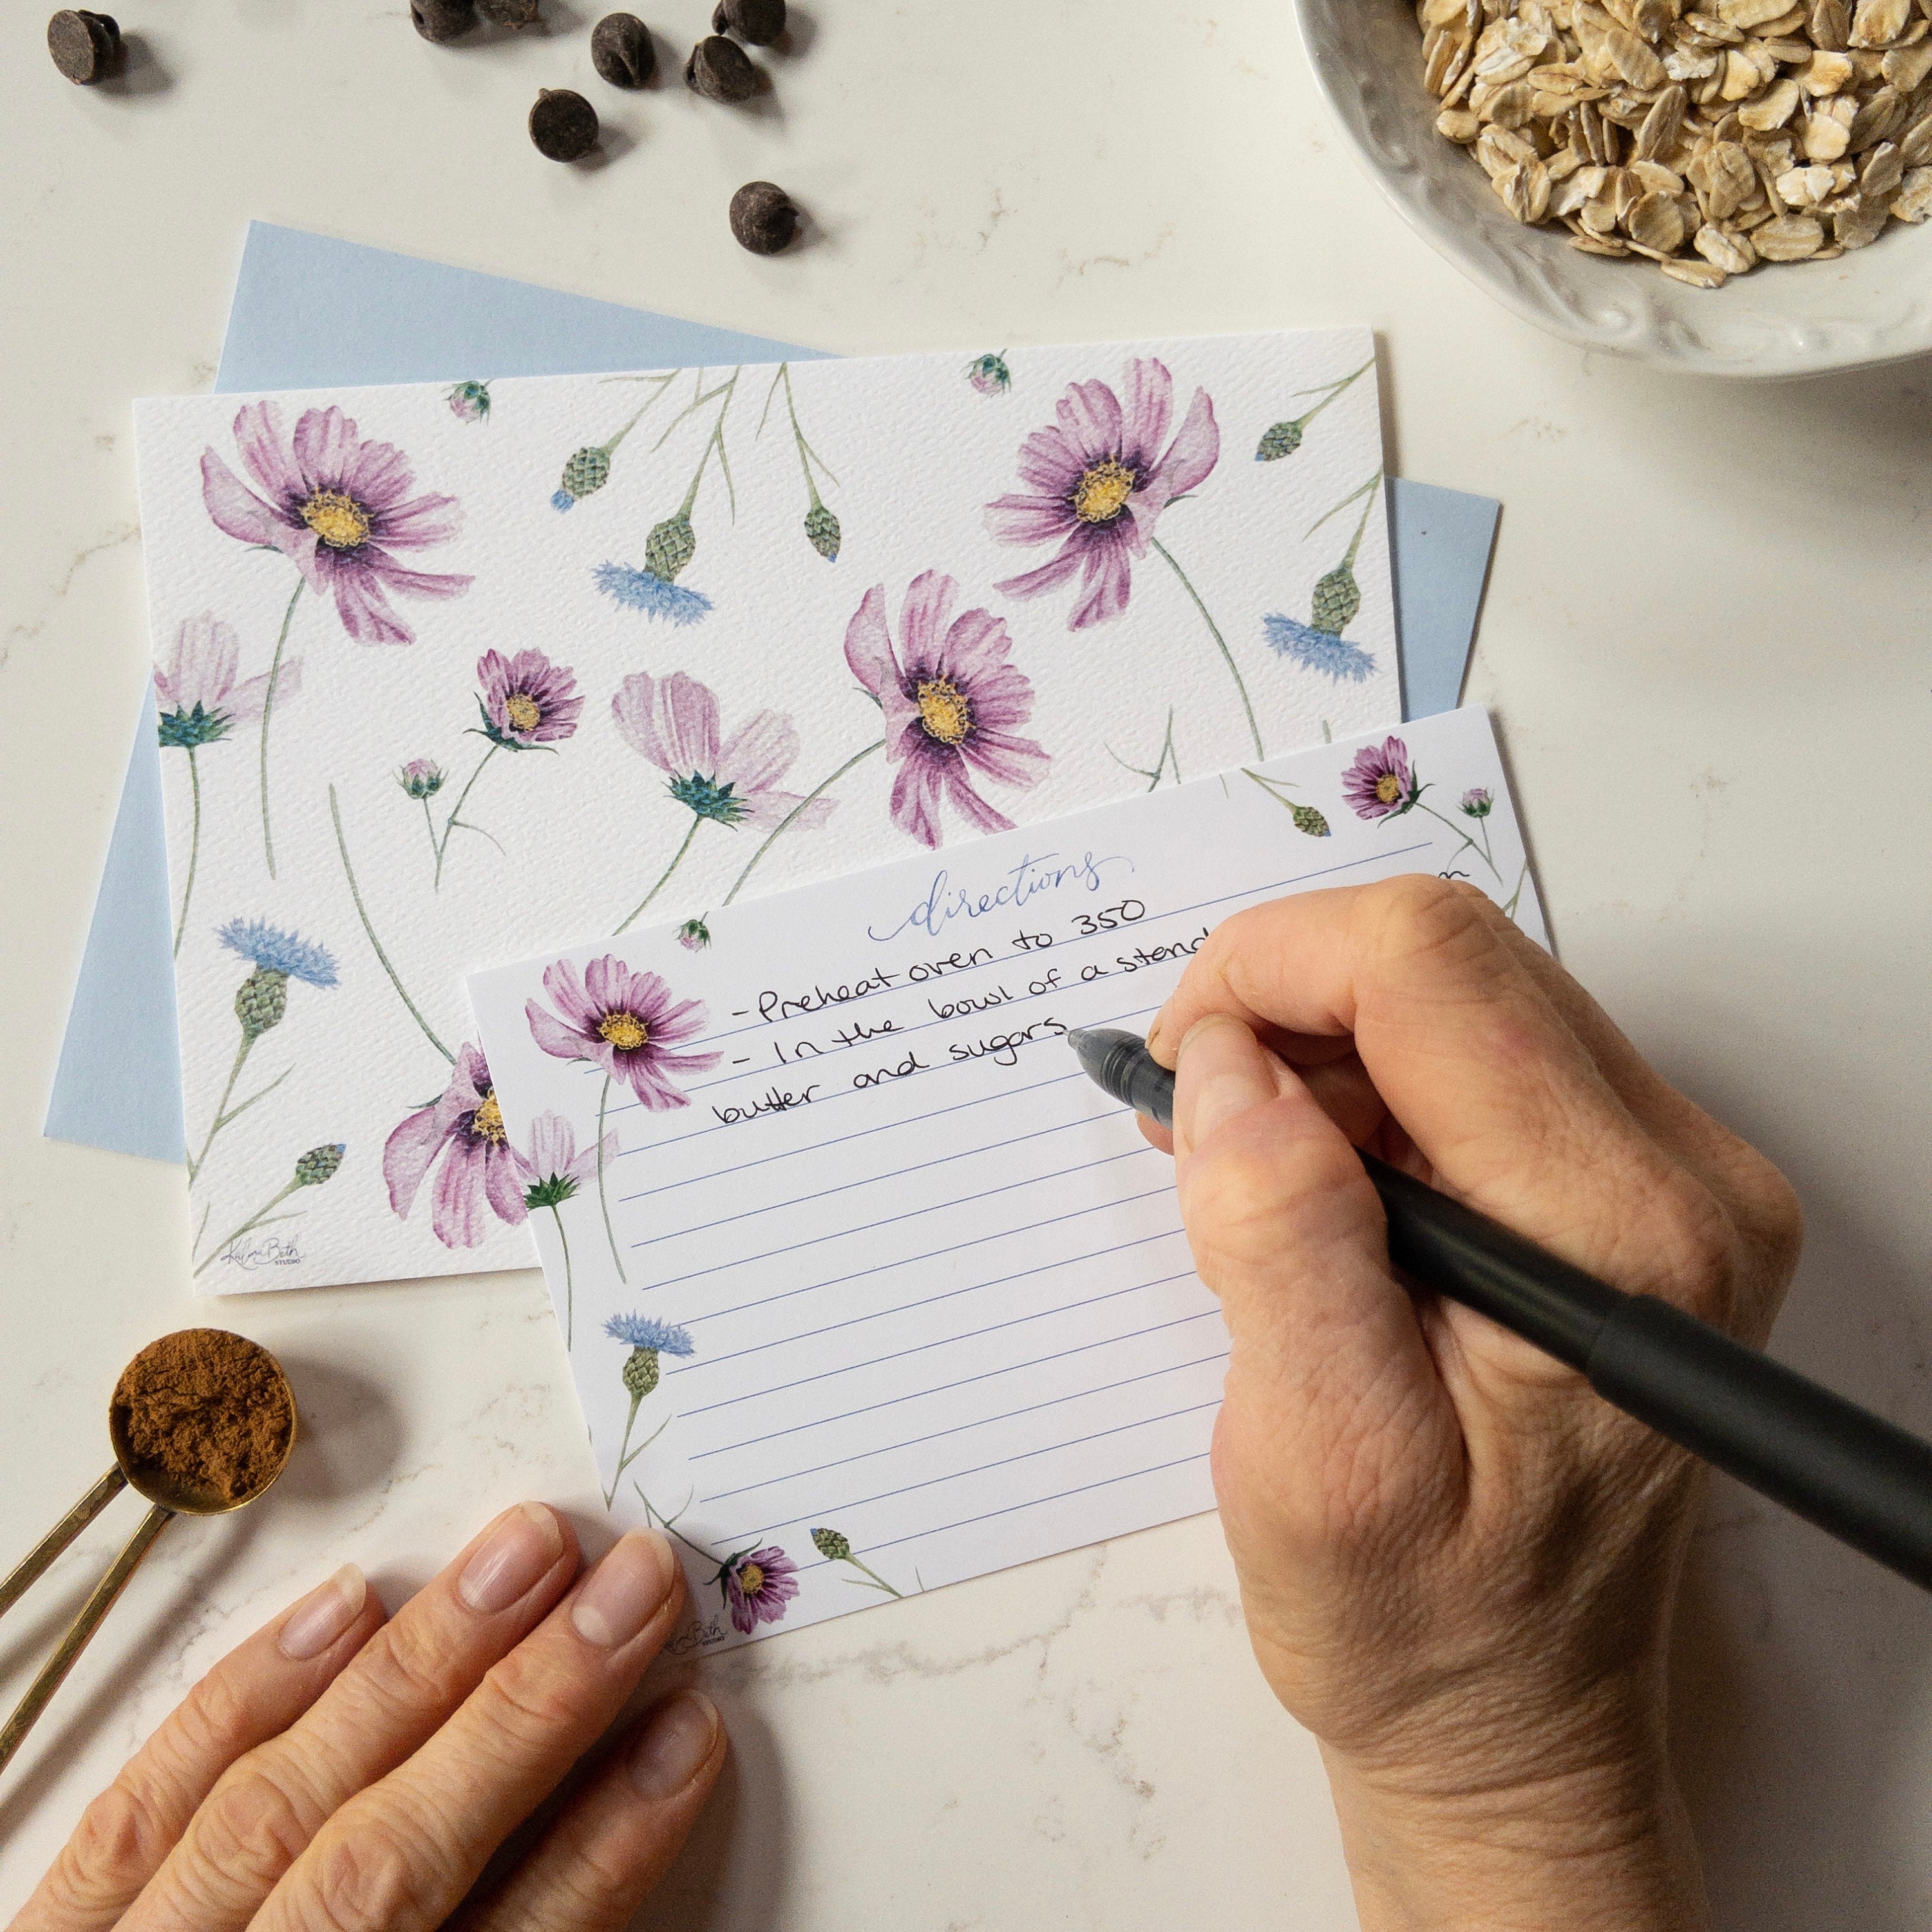 directions
- Preheat oven to 350
- In the bowl of a stand
butter and sugars
STUDIO
Beth
STUDIO